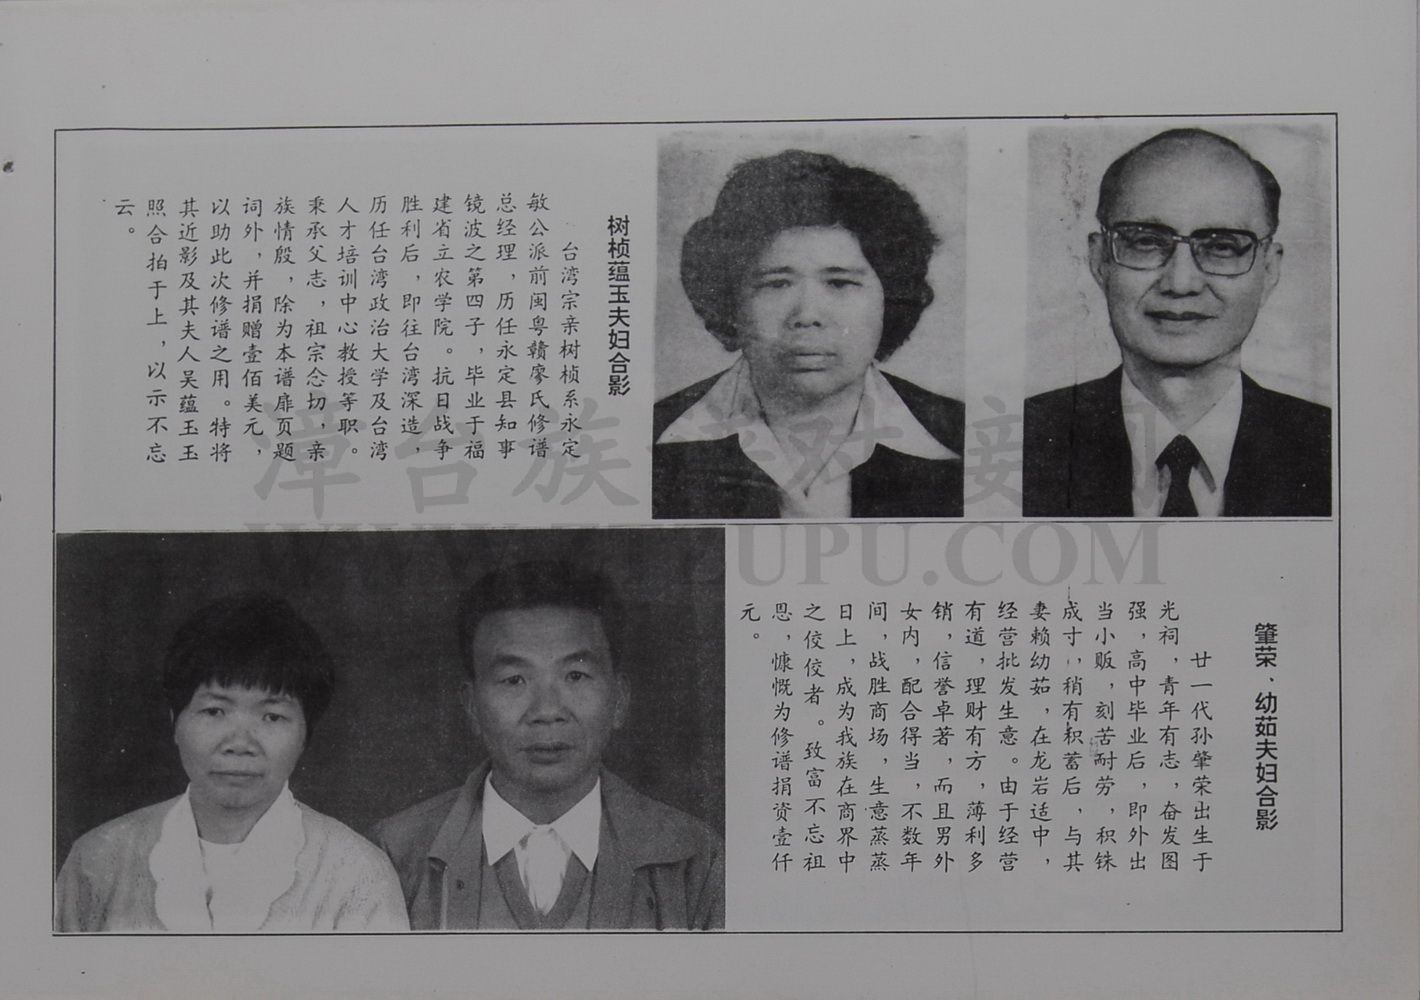 树桢蕴玉夫妇合影
台湾宗亲树桢系永定
敏公派前闽粤赣廖氏修谱
总经理，历任永定县知事
镜波之第四子，毕业于福
建省立农学院。抗日战争
胜利后，即往台湾深造，
历任台湾政治大学及台湾
人才培训中心教授等职。
秉承父志，祖宗念切，亲
族情殷，除为本谱扉页题
词外，并捐赠壹佰美元，
以助此次修谱之用。特将
其近影及其夫人吴蕴玉玉
照合拍于上，以示不忘
云。
肇荣、幼茹夫妇合影
廿一代孙肇荣出生于
光祠，青年有志，奋发图
强，高中毕业后，即外出
当小贩，刻苦耐劳，积铢
成寸，稍有积蓄后，与其
妻赖幼茹，在龙岩适中，
经营批发生意。由于经营
有道，理财有方，薄利多
销，信誉卓著，而且男外
女内，配合得当，不数年
间，战胜商场，生意蒸蒸
日上，成为我族在商界中
之佼佼者。致富不忘祖
恩，慷慨为修谱捐资壹仟
元。
漳台族谱对接
WWW.ZTZUPU.COM